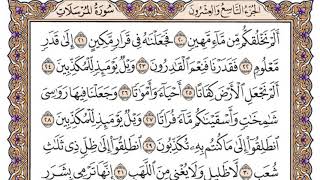 الجزء التاسع والعشرون
سورة المرسلات
أَلَمْ نَخْلُقكُّم مِّن مَّآءٍ مَّهِينٍ ٢٠ فَجَعَلْنَٰهُ فِى قَرَارٍ مَّكِينٍ ٢١ إِلَىٰ قَدَرٍ
مَّعْلُومٍ ٢٢ فَقَدَرْنَا فَنِعْمَ ٱلْقَٰدِرُونَ ٢٣ وَيْلٌ يَوْمَئِذٍ لِّلْمُكَذِّبِينَ ٢٤
أَلَمْ نَجْعَلِ ٱلْأَرْضَ كِفَاتًا ٢٥ أَحْيَآءً وَأَمْوَٰتًا ٢٦ وَجَعَلْنَا فِيهَا رَوَٰسِىَ
شَٰمِخَٰتٍ وَأَسْقَيْنَٰكُم مَّآءً فُرَاتًا ٢٧ وَيْلٌ يَوْمَئِذٍ لِّلْمُكَذِّبِينَ ٢٨
ٱنطَلِقُوٓا۟ إِلَىٰ مَا كُنتُم بِهِۦ تُكَذِّبُونَ ٢٩ ٱنطَلِقُوٓا۟ إِلَىٰ ظِلٍّ ذِى ثَلَٰثِ
شُعَبٍ ٣٠ لَّا ظَلِيلٍ وَلَا يُغْنِى مِنَ ٱللَّهَبِ ٣١ إِنَّهَا تَرْمِى بِشَرَرٍ